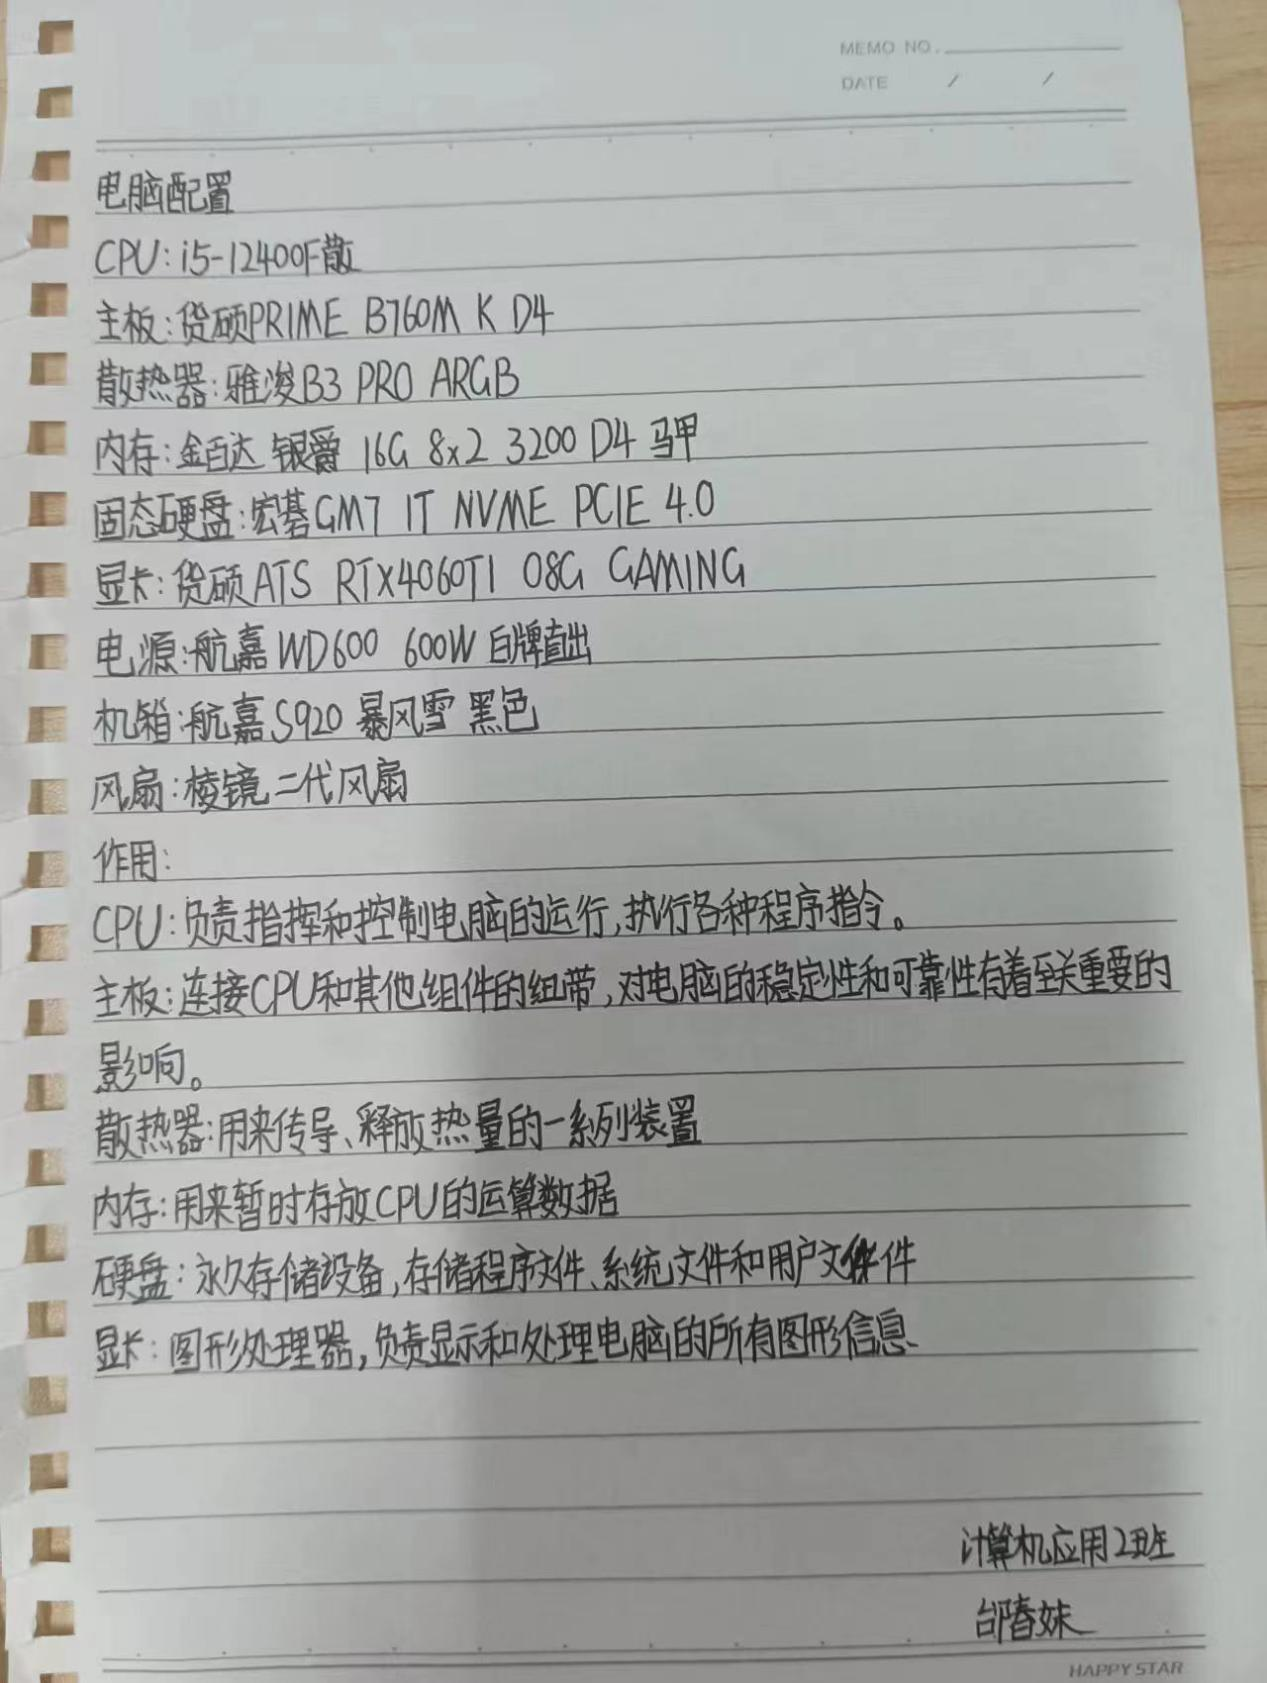 MEMO NO.
DATE / /
电脑配置
CPU: i5-12400F散
主板:货硕PRIME B760M K D4
散热器:雅浚B3 PRO ARGB
内存:金百达 银爵 16G 8x2 3200 D4 马甲
固态硬盘:宏碁GM7 1T NVME PCIE 4.0
显卡:货硕ATS RTX4060TI 08G GAMING
电源:航嘉WD600 600W 白牌直出
机箱:航嘉S920 暴风雪 黑色
风扇:棱镜二代风扇
作用:
CPU:负责指挥和控制电脑的运行,执行各种程序指令。
主板:连接CPU和其他组件的纽带,对电脑的稳定性和可靠性有着至关重要的
影响。
散热器:用来传导、释放热量的一系列装置
内存:用来暂时存放CPU的运算数据
硬盘:永久存储设备,存储程序文件、系统文件和用户文件
显卡:图形处理器,负责显示和处理电脑的所有图形信息
计算机应用2班
邰春妹
HAPPY STAR